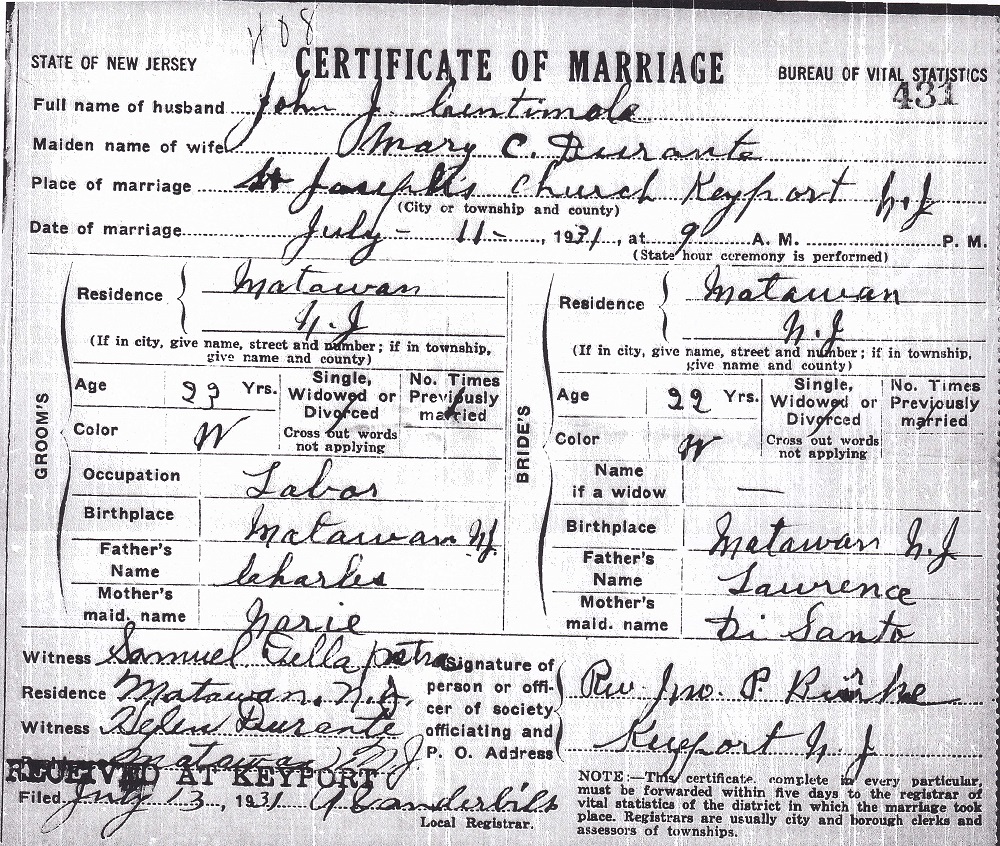 408
STATE OF NEW JERSEY CERTIFICATE OF MARRIAGE BUREAU OF VITAL STATISTICS
431
Full name of husband John J. Centimole
Maiden name of wife Mary C. Durante
Place of marriage St Joseph's Church Keyport N.J
(City or township and county)
Date of marriage July - 11 - , 1931 , at 9 A. M. P. M.
(State hour ceremony is performed)
GROOM'S
Residence Matawan
N.J
(If in city, give name, street and number; if in township, give name and county)
Age 23 Yrs. Single, Widowed or Divorced No. Times Previously married
Color W Cross out words not applying
Occupation Labor
Birthplace Matawan NJ.
Father's Name Charles
Mother's maid. name Marie
BRIDE'S
Residence Matawan
N.J
(If in city, give name, street and number; if in township, give name and county)
Age 22 Yrs. Single, Widowed or Divorced No. Times Previously married
Color W Cross out words not applying
Name if a widow —
Birthplace Matawan N.J
Father's Name Lawrence
Mother's maid. name Di Santo
Witness Samuel Cella petra
Residence Matawan, N.J.
Witness Helen Durante
Matawan N J
Signature of person or officer of society officiating and P. O. Address
Rev. Jno. P.
Keyport N. J
RECEIVED AT KEYPORT
Filed July 13 , 1931 Vanderbilt
Local Registrar.
NOTE:—This certificate, complete in every particular,
must be forwarded within five days to the registrar of
vital statistics of the district in which the marriage took
place. Registrars are usually city and borough clerks and
assessors of townships.